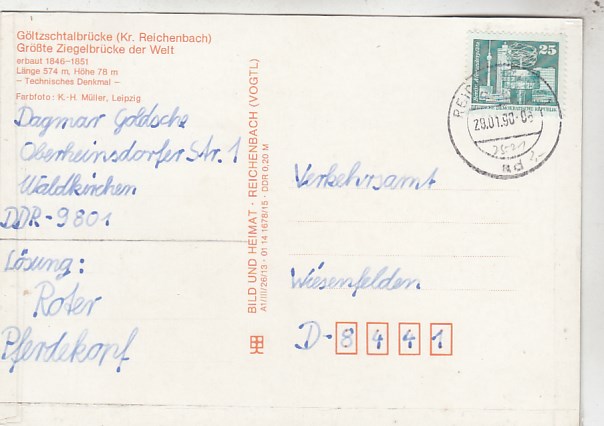 Göltzschtalbrücke (Kr. Reichenbach)
Größte Ziegelbrücke der Welt
erbaut 1846-1851
Länge 574 m, Höhe 78 m
– Technisches Denkmal –
Farbfoto: K.-H. Müller, Leipzig
Dagmar Goldsche
Oberheinsdorfer Str. 1
Waldkirchen
DDR-9801
Lösung:
Roter
Pferdekopf
BILD UND HEIMAT · REICHENBACH (VOGTL)
A1/III/26/13 · 01 14 1678/15 · DDR 0,20 M
25
28.01.90
Verkehrsamt
Wiesenfelden
D-8441